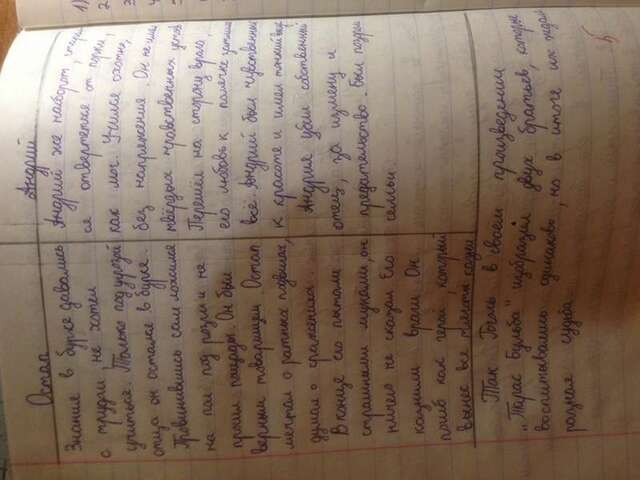 Остап
Знание в бурсе давались
с трудом, не хотел
учиться. Только под угрозой
отца он остался в бурсе.
Провинившись сам ложился
на пол под розги и не
просил пощады. Он был
верным товарищем. Остап
мечтал о ратных подвигах,
думал о сражениях.
В конце его пытали
страшными муками, он
ничего не сказал. Его
казнили враги. Он
погиб как герой, который
вынес все
Андрий
Андрий же наоборот,
ся отвертеться от порки,
как мог. Учился охотно,
без напряжения. Он не
твёрдых нравственных
Перешёл на сторону врага,
его любовь к полячке
всё. Андрий был чувственный
к красоте и имел
Андрия убил собственный
отец, за измену и
предательство. Был
семьи.
Так Гоголь в своём произведении
"Тарас Бульба" изобразил двух братьев, которые
воспитывались одинаково, но в итоге их ждала
разная судьба.
5
1)
2
3
4